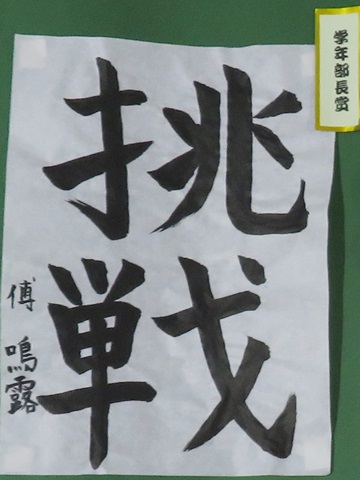 挑
戦
傅鳴露
学年部長賞